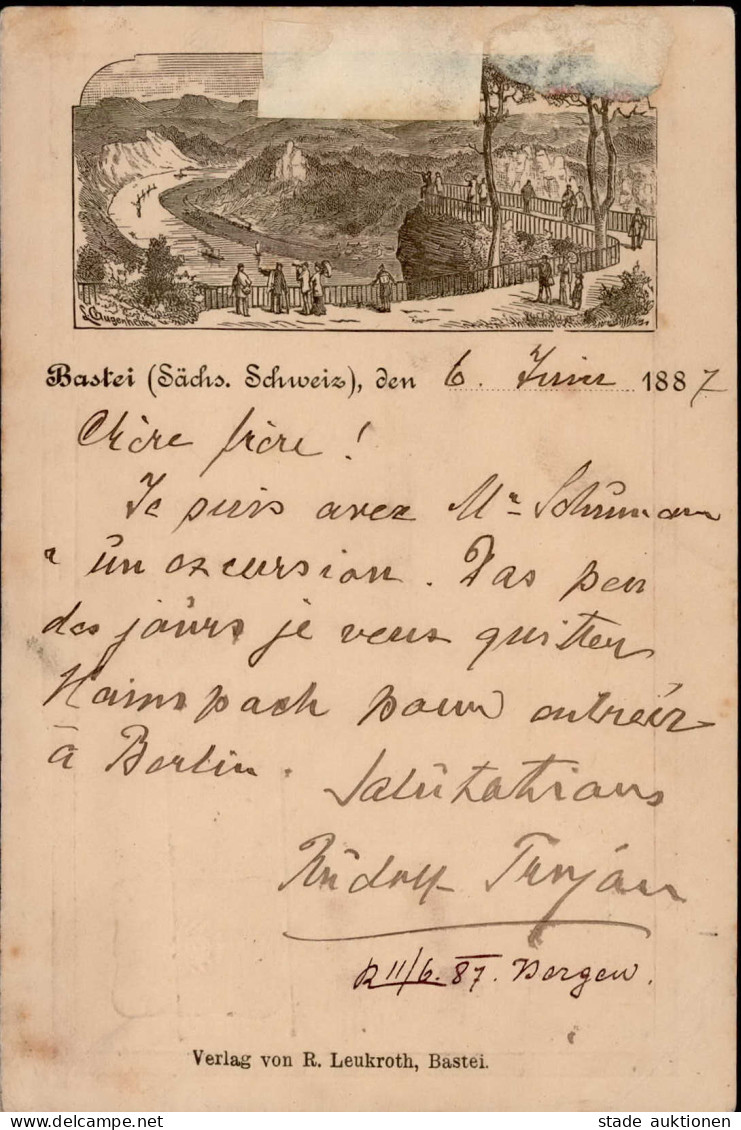 L. Gugenheim
Bastei (Sächs. Schweiz), den 6. Juin 1887
Chère frère!
Je suis avez Mr Schuman
un excursion. Das peu
des joûrs je veus quitter
Hainspach pour entréer
à Berlin.
Salûtations
Rûdolf Troján
R 11/6. 87. Bergen.
Verlag von R. Leukroth, Bastei.
stade auktionen